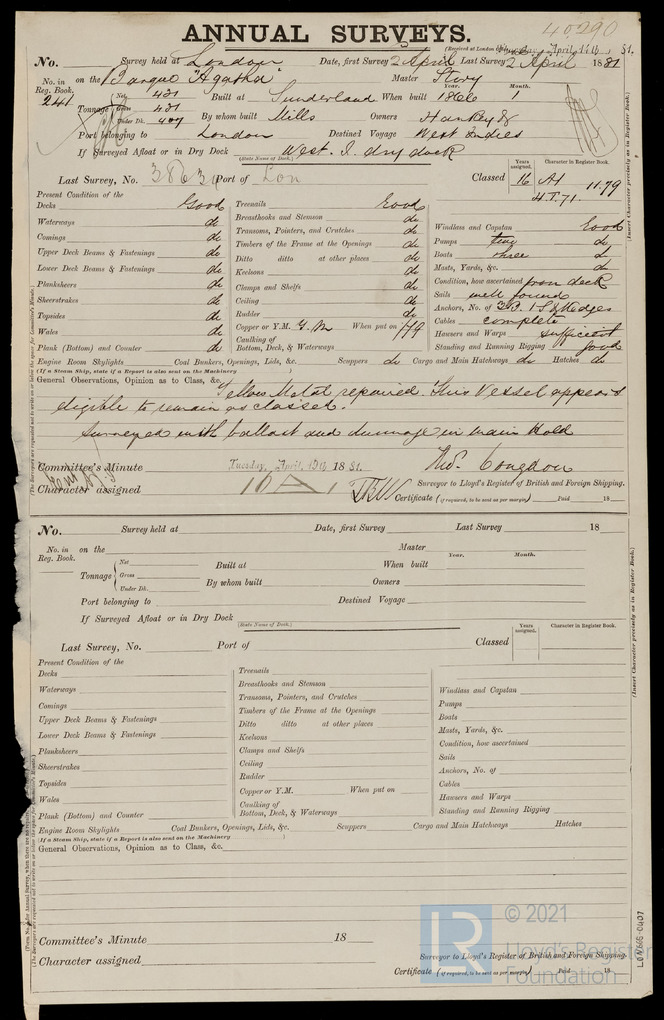 ANNUAL SURVEYS. 40290
(Received at London Office, Tuesday April 19th 81.
No. Survey held at London Date, first Survey 2 April Last Survey 2 April 1881
No. in Reg. Book. 241 on the Barque "Agatha" Master Story
Tonnage { Net 431 Built at Sunderland When built Year. 1866 Month. 1
Gross 431
Under Dk. 407 By whom built Mills Owners Hankey &
Port belonging to London Destined Voyage West Indies
If Surveyed Afloat or in Dry Dock West. I dry dock
(State Name of Dock.)
Last Survey, No. Port of Lon Classed Years assigned. 16 Character in Register Book. A1 11.79
H.T. 71.
(Insert Character precisely as in Register Book.)
Present Condition of the
Decks Good Treenails Good
Waterways do Breasthooks and Stemson do Windlass and Capstan Good
Comings do Transoms, Pointers, and Crutches do Pumps two do
Upper Deck Beams & Fastenings do Timbers of the Frame at the Openings do Boats three do
Lower Deck Beams & Fastenings do Ditto ditto at other places do Masts, Yards, &c. do
Planksheers do Keelsons do Condition, how ascertained from deck
Sheerstrakes do Clamps and Shelfs do Sails well found
Topsides do Ceiling do Anchors, No. of 3B. 1 S & Kedges
Wales do Rudder do Cables complete
Plank (Bottom) and Counter do Copper or Y.M. Y.M When put on /79 Hawsers and Warps sufficient
Caulking of Bottom, Deck, & Waterways Standing and Running Rigging good
Engine Room Skylights Coal Bunkers, Openings, Lids, &c. Scuppers do Cargo and Main Hatchways do Hatches do
(If a Steam Ship, state if a Report is also sent on the Machinery )
General Observations, Opinion as to Class, &c. Yellow Metal repaired. This Vessel appears
eligible to remain as classed.
Surveyed with ballast and dunnage in main Hold
Committee's Minute Tuesday, April, 19th 1881. Thos. Congdon
Surveyor to Lloyd's Register of British and Foreign Shipping.
Character assigned
Certificate (if required, to be sent as per margin) Paid 18
No. Survey held at Date, first Survey Last Survey 18
No. in Reg. Book. on the Master
Tonnage { Net Built at When built Year. Month.
Gross
Under Dk. By whom built Owners
Port belonging to Destined Voyage
If Surveyed Afloat or in Dry Dock
(State Name of Dock.)
Last Survey, No. Port of Classed Years assigned. Character in Register Book.
(Insert Character precisely as in Register Book.)
Present Condition of the
Decks Treenails
Waterways Breasthooks and Stemson Windlass and Capstan
Comings Transoms, Pointers, and Crutches Pumps
Upper Deck Beams & Fastenings Timbers of the Frame at the Openings Boats
Lower Deck Beams & Fastenings Ditto ditto at other places Masts, Yards, &c.
Planksheers Keelsons Condition, how ascertained
Sheerstrakes Clamps and Shelfs Sails
Topsides Ceiling Anchors, No. of
Wales Rudder Cables
Plank (Bottom) and Counter Copper or Y.M. When put on Hawsers and Warps
Caulking of Bottom, Deck, & Waterways Standing and Running Rigging
Engine Room Skylights Coal Bunkers, Openings, Lids, &c. Scuppers Cargo and Main Hatchways Hatches
(If a Steam Ship, state if a Report is also sent on the Machinery )
General Observations, Opinion as to Class, &c.
Committee's Minute 18
Surveyor to Lloyd's Register of British and Foreign Shipping.
Character assigned
Certificate (if required, to be sent as per margin) Paid 18
© 2021
Lloyd's Register
Foundation
LON666-0407